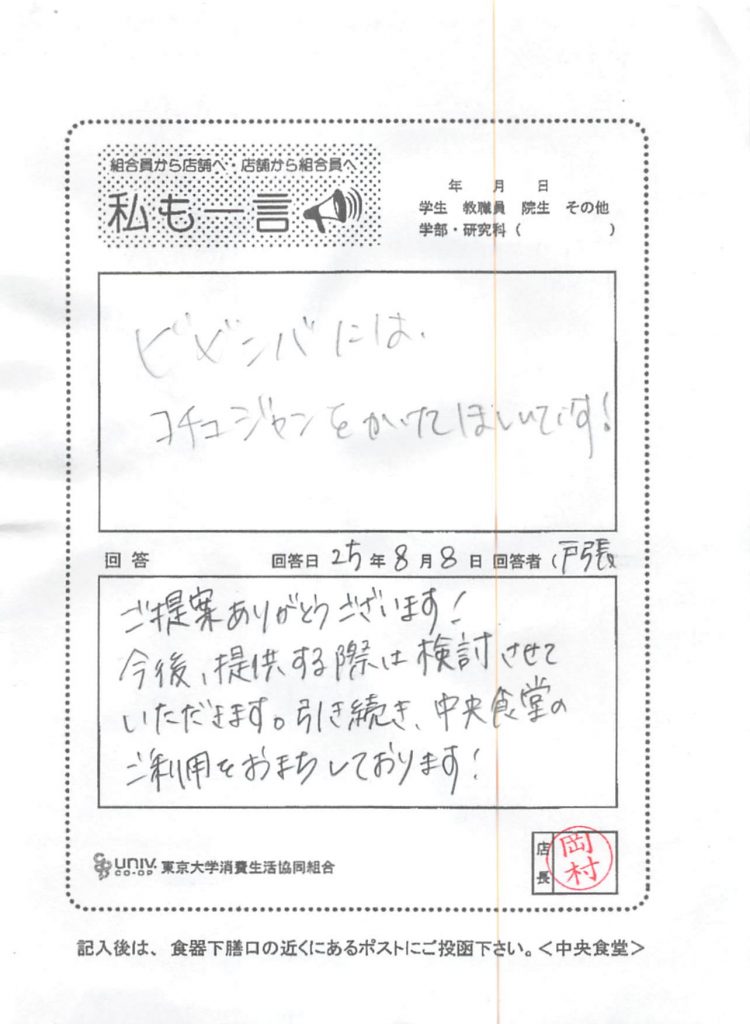 組合員から店舗へ・店舗から組合員へ
私も一言
年 月 日
学生 教職員 院生 その他
学部・研究科( )
ビビンバには、
コチュジャンをかけてほしいです!
回答 回答日 25年8月8日 回答者(戸張)
ご提案ありがとうございます!
今後、提供する際は検討させて
いただきます。引き続き、中央食堂の
ご利用をおまちしております!
UNIV. CO-OP 東京大学消費生活協同組合
店長 岡村
記入後は、食器下膳口の近くにあるポストにご投函下さい。<中央食堂>